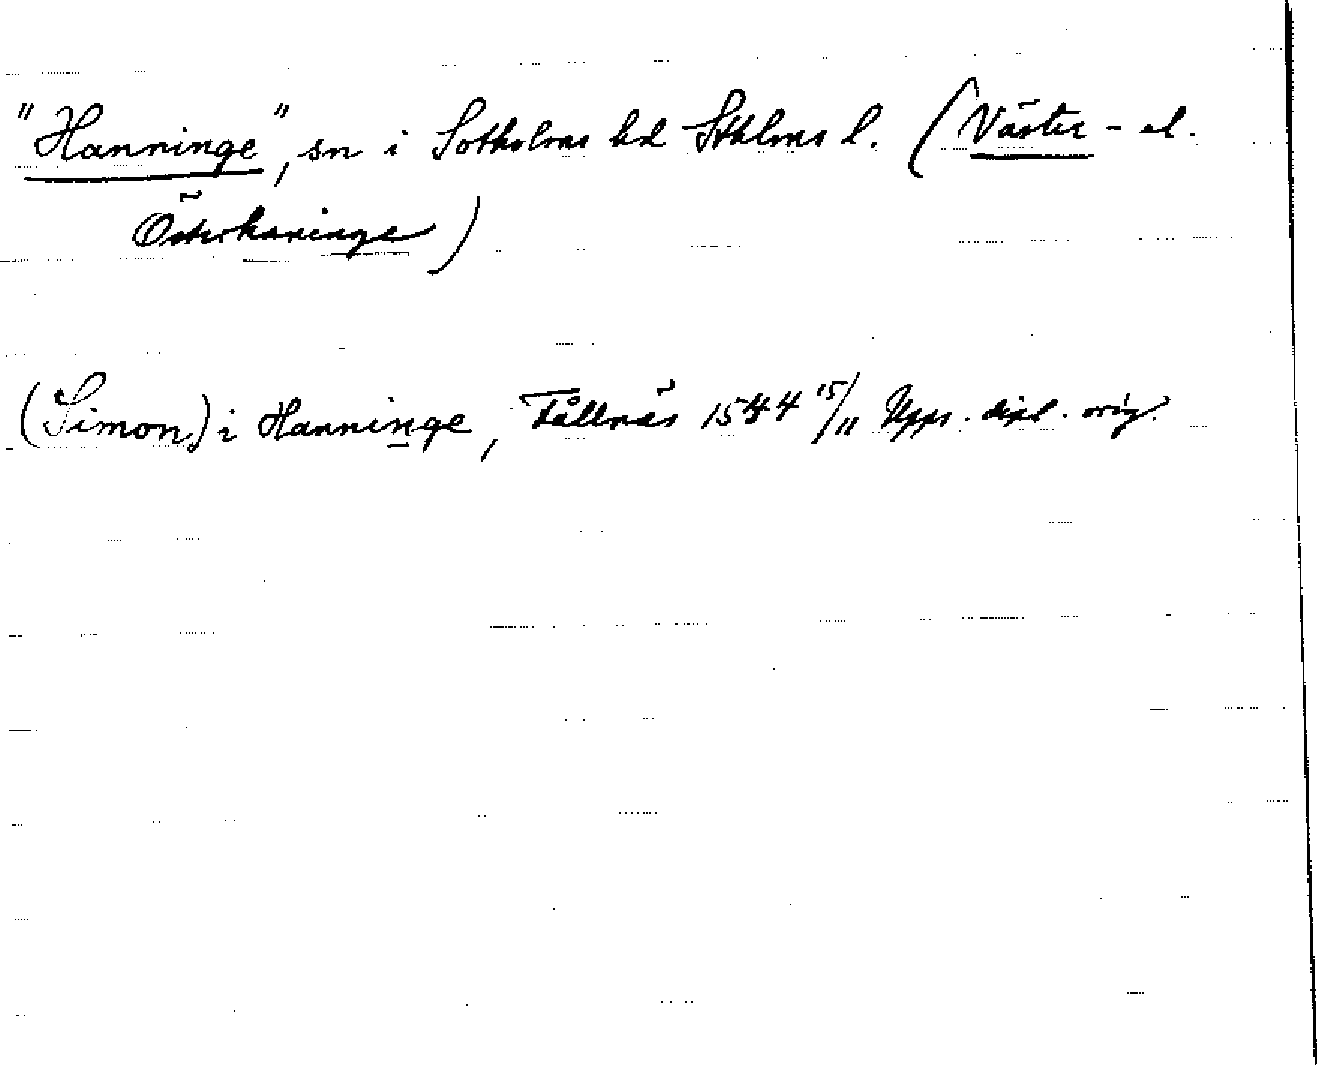 "Hanninge", sn i Sotholms hd Sthlms l. (Väster- el.
Österhaninge)
(Simon) i Hanninge, Fållnäs 1544 15/11 Upps. dipl. orig.